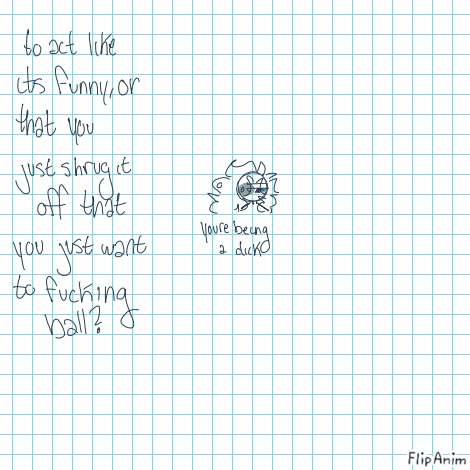 to act like
its funny, or
that you
just shrug it
off that
you just want
to fucking
ball?
youre being
a dick
FlipAnim